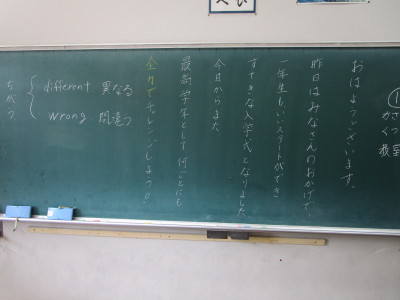 ①
かさつ
くつ
教室
おはようございます。
昨日はみなさんのおかげで、
一年生もいいスタートができ
すてきな入学式となりました。
今日からまた
最高学年として何ごとにも
全力でチャレンジしよう！
different 異なる
wrong 間違う
ちがう